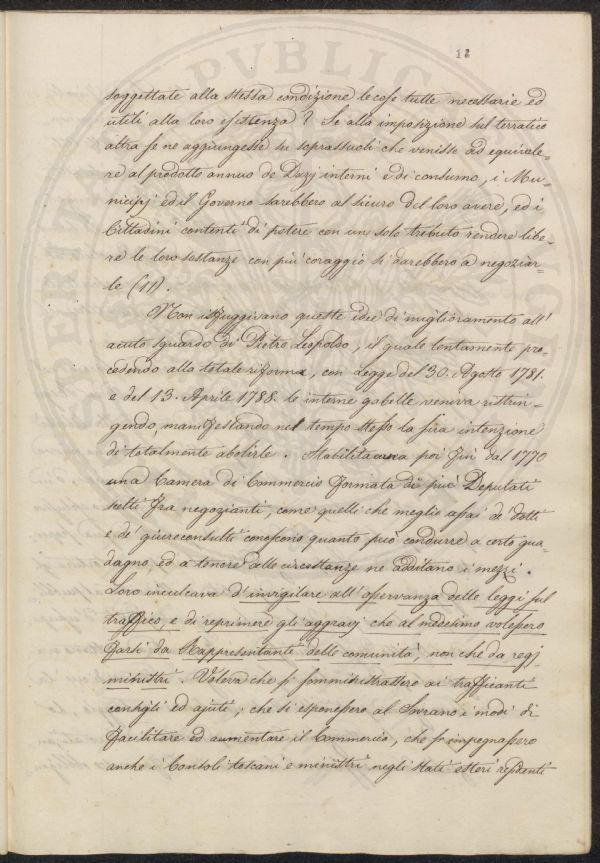 12
soggettate alla stessa condizione le cose tutte necessarie ed
utili alla loro esistenza? Se alla imposizione sul terratico
altra se ne aggiungesse su soprassuoli che venisse ad equivale-
re al prodotto annuo de Dazj interni e di consumo, i Mu-
nicipj ed il Governo sarebbero al sicuro del loro avere, ed i
Cittadini contenti di potere con un solo tributo rendere libe-
re le loro sostanze con più coraggio si darebbero a negoziar-
le (11).
Non isfuggivano queste idee di miglioramento all'
acuto sguardo di Pietro Leopoldo, il quale lentamente pro-
cedendo alla totale riforma, con Legge del 30. Agosto 1781.
e del 13. Aprile 1788. le interne gabelle veniva restrin-
gendo, manifestando nel tempo stesso la sua intenzione
di totalmente abolirle. Stabilita aveva poi fin dal 1770
una Camera di Commercio formata di più Deputati
scelti fra negozianti, come quelli che meglio assai de' dotti
e de' giureconsulti conoscono quanto può condurre a certo gua-
dagno, ed a tenore delle circostanze ne additano i mezzi.
Loro inculcava d'invigilare all'osservanza delle leggi sul
traffico, e di reprimere gli aggravj che al medesimo volessero
farsi da Rappresentanti delle comunità, non che da regj
ministri. Voleva che si somministrassero ai trafficanti
consigli ed ajuti; che si esponessero al Sovrano i modi di
facilitare ed aumentare il Commercio, che s'impegnassero
anche i Consoli toscani e ministri negli stati esteri residenti